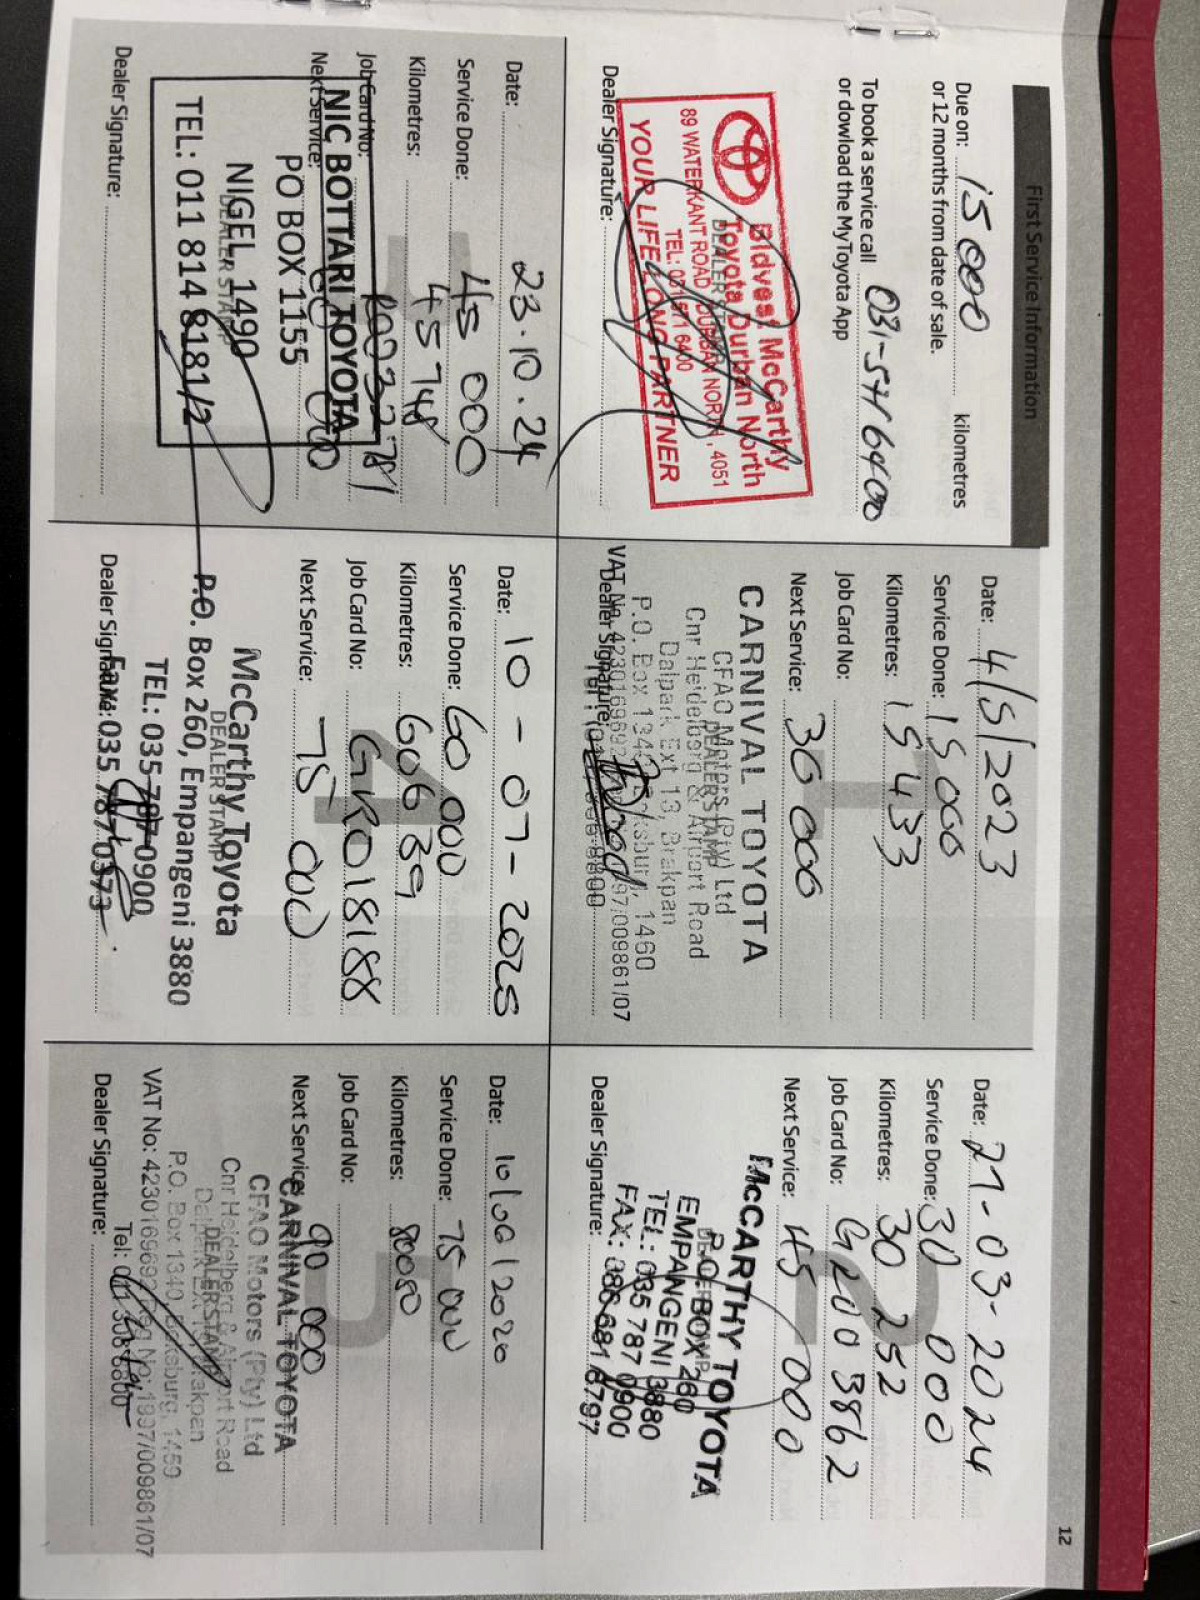 12
First Service Information
Due on: 15 000 kilometres
or 12 months from date of sale.
To book a service call 031-571 6400
or dowload the MyToyota App
Bidvest McCarthy
Toyota Durban North
DEALER STAMP
89 WATERKANT ROAD, DURBAN NORTH, 4051
TEL: 031 571 6400
YOUR LIFE LONG PARTNER
Dealer Signature:
1
Date: 4/5/2023
Service Done: 15000
Kilometres: 15433
Job Card No:
Next Service: 30 000
CARNIVAL TOYOTA
CFAO Motors (Pty) Ltd
DEALER STAMP
Cnr Heidelberg & Airport Road
Dalpark Ext 13, Brakpan
P.O. Box 1340, Boksburg, 1460
VAT No. 4230169692 97/009861/07
Dealer Signature:
2
Date: 27-03-2024
Service Done: 30 000
Kilometres: 30 252
Job Card No: G200 3862
Next Service: 45 000
McCARTHY TOYOTA
P.O. BOX 260
DEALER STAMP
EMPANGENI 3880
TEL: 035 787 0900
FAX: 086 681 8797
Dealer Signature:
Date: 23.10.24
Service Done: 45 000
Kilometres: 45748
Job Card No:
Next Service:
NIC BOTTARI TOYOTA
PO BOX 1155
NIGEL 1490
DEALER STAMP
TEL: 011 814 8181/2
Dealer Signature:
4
Date: 10-07-2025
Service Done: 60 000
Kilometres: 60639
Job Card No: GR018188
Next Service: 75 000
McCarthy Toyota
DEALER STAMP
P.O. Box 260, Empangeni 3880
TEL: 035 787 0900
Fax: 035 787 0373
Dealer Signature:
5
Date: 10/06/2020
Service Done: 75 000
Kilometres: 80080
Job Card No:
Next Service: 90 000
CARNIVAL TOYOTA
CFAO Motors (Pty) Ltd
Cnr Heidelberg & Airport Road
DEALER STAMP
Dalpark Ext 13, Brakpan
P.O. Box 1340, Boksburg, 1459
VAT No: 4230169692 Reg No: 1997/009861/07
Tel: 011 308 8800
Dealer Signature: